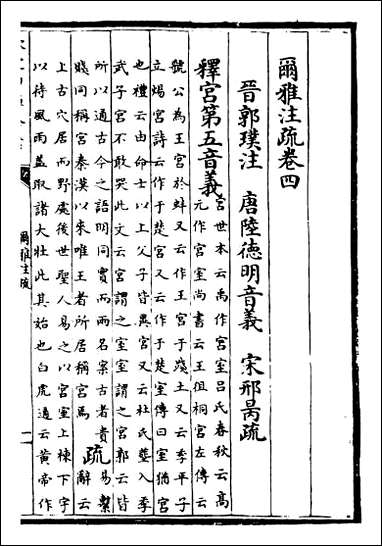 爾雅注疏卷四
晉郭璞注　唐陸德明音義　宋邢昺疏
釋宮第五音義
宮世本云禹作宮室呂氏春秋云高
元作宮室尚書云王徂桐宮左傳云
虢公為王宮於蚌又云作王宮于踐土又云季平子
立煬宮詩云作于楚宮又云作于楚室傳曰室猶宮
也禮云由命士以上父子皆異宮又云杜氏塟入季
武子宮不敢哭此文云宮謂之室室謂之宮郭云皆
所以通古今之語明同實而兩名案古者貴
賤同稱宮秦漢以來唯王者所居稱宮焉
疏
易繫
辭云
上古穴居而野處後世聖人易之以宮室上棟下宇
以待風雨盖取諸大壯此其始也白虎通云黃帝作
爾雅注疏